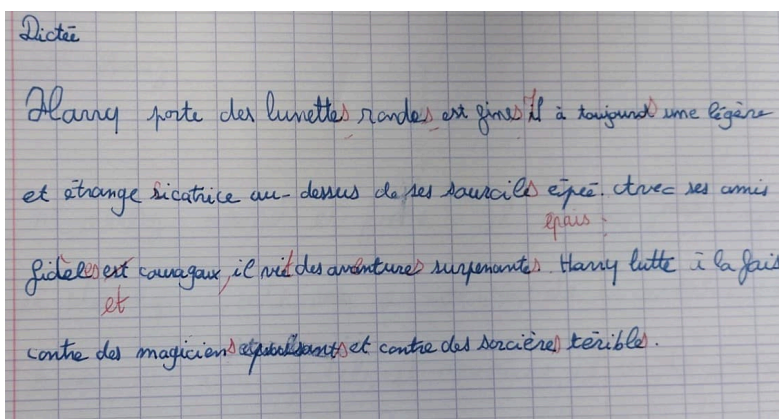 Dictée
Harry porte des lunettes rondes est fines il à toujours une légère
et étrange sicatrice au-dessus de ses sourcils épeé. Avec ses amis
épais.
fidèles est couragaux, il vit des aventures surpenantes. Harry lutte à la fois
et
contre des magiciens et contre des sorcières téribles.